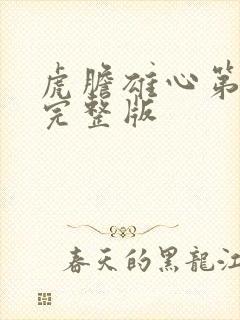 虎膽雄心第
完整版
春天的黑龍江